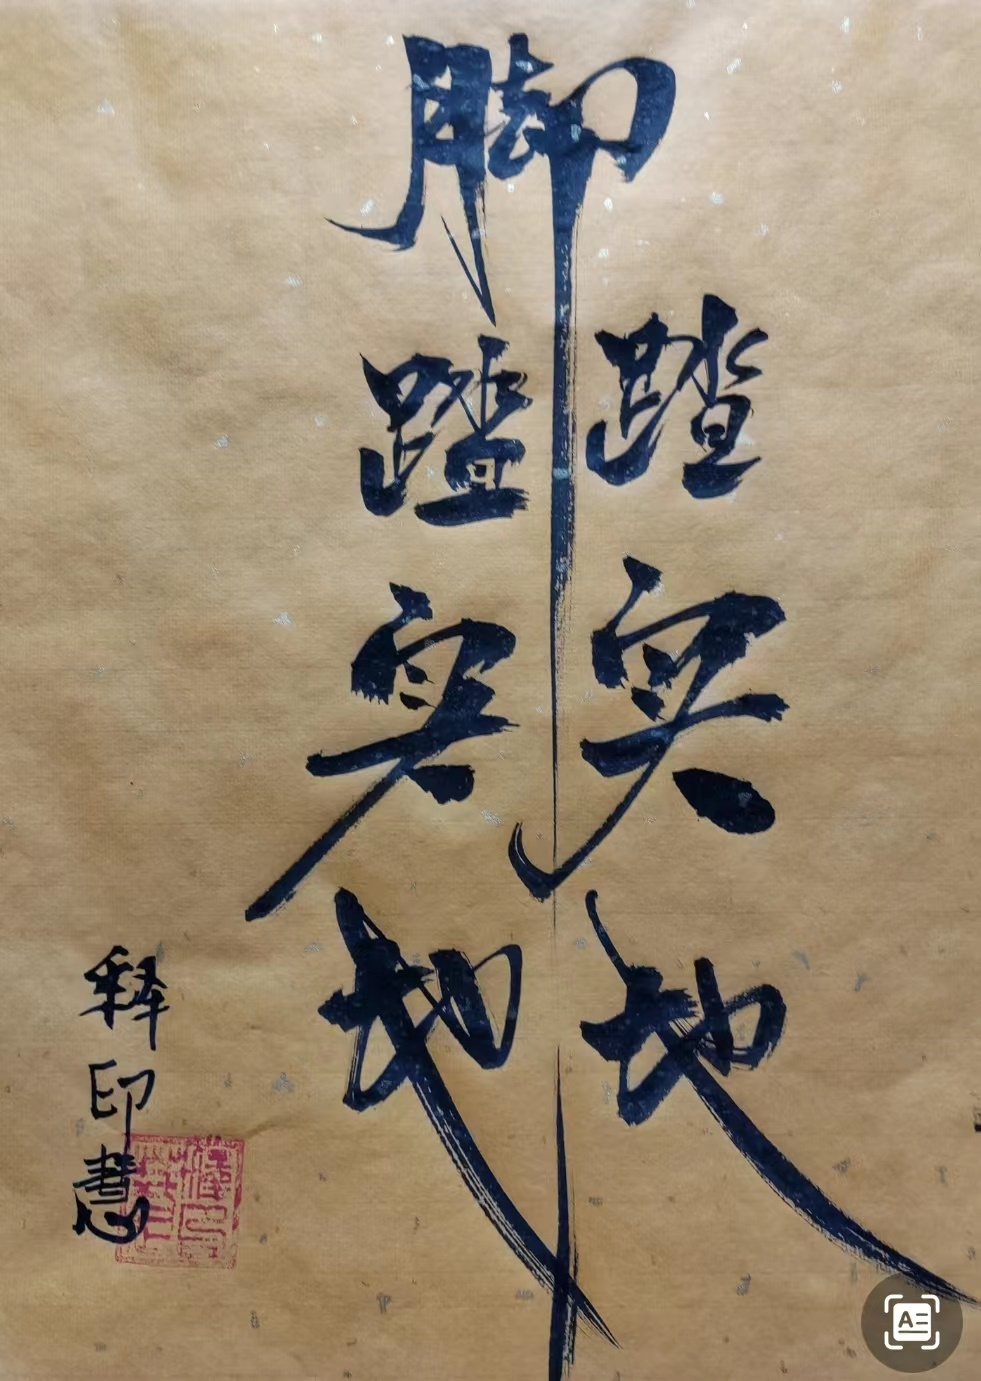 脚
踏 踏
实 实
地 地
释印慧